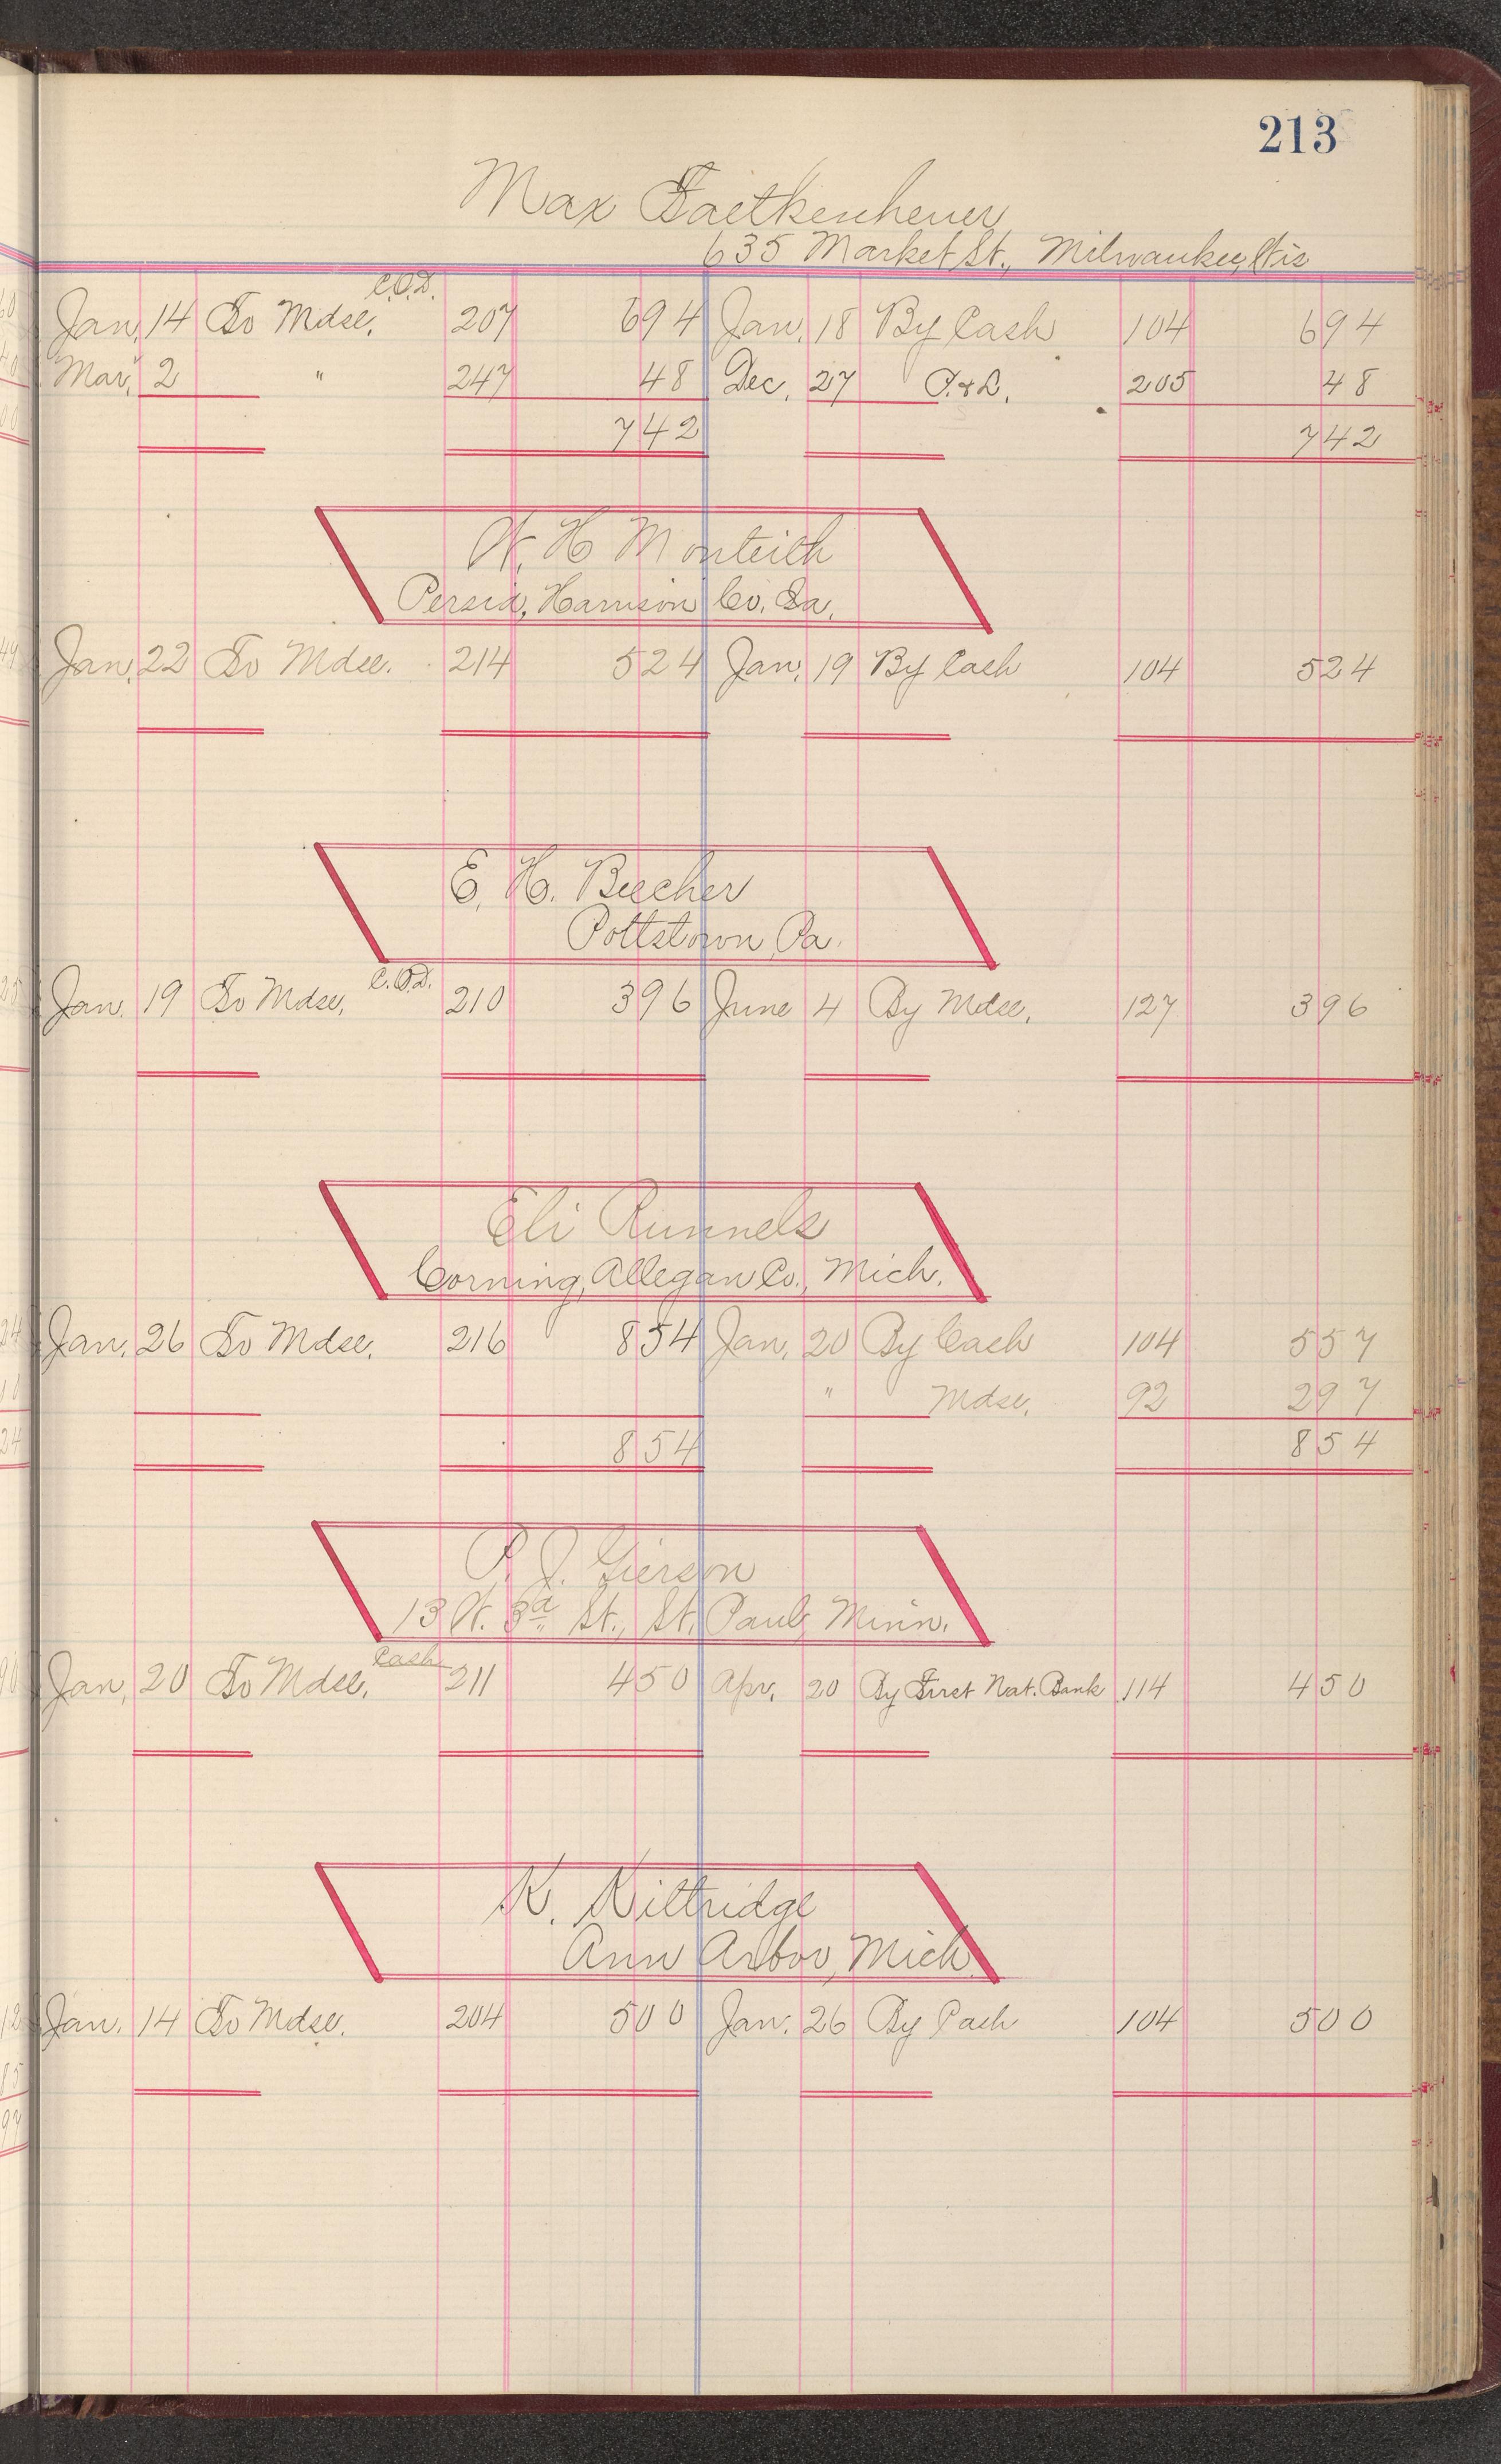 213
Max Faetkenheuer
635 Market St., Milwaukee, Wis
C.O.D.
Jan. 14 To Mdse. 207 6 94 Jan. 18 By Cash 104 6 94
Mar. 2 " 247 48 Dec. 27 P. & L. 205 48
7 42 7 42
W. H Monteith
Persia, Harrison Co. Ia.
Jan. 22 To Mdse. 214 5 24 Jan. 19 By Cash 104 5 24
E. H. Beecher
Pottstown, Pa.
C.O.D.
Jan. 19 To Mdse. 210 3 96 June 4 By Mdse. 127 3 96
Eli Runnels
Corning, Allegan Co., Mich.
Jan. 26 To Mdse. 216 8 54 Jan. 20 By Cash 104 5 57
" Mdse. 92 2 97
8 54 8 54
P. J. Gierson
13 W. 3d St., St. Paul, Minn.
Cash
Jan. 20 To Mdse. 211 4 50 Apr. 20 By First Nat. Bank 114 4 50
K. Kittridge
Ann Arbor, Mich.
Jan. 14 To Mdse. 204 5 00 Jan. 26 By Cash 104 5 00